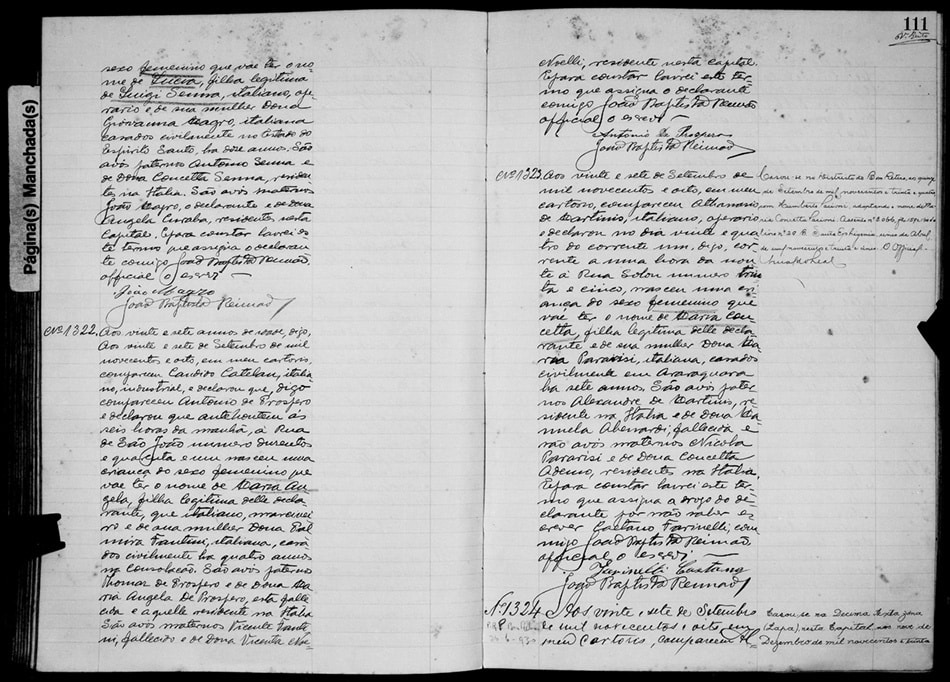 Página(s) Manchada(s)
sexo femenino que vae ter o no-
me de Lucia, filha legitima
de Luigi Senna, italiano, ope-
rario e de sua mulher Dona
Giovanna Magro, italiana
casados civilmente no Estado do
Espirito Santo, ha doze annos. São
avós paternos Antonio Senna e
de Dona Concetta Senna, residen-
tes na Italia. São avós maternos
João Magro, o declarante e de Dona
Angela Curaba, residentes nesta
Capital. E para constar lavrei es-
te termo que assigna o declaran-
te comigo João Baptista Reimão
official o escrevi
João Magro
João Baptista Reimão
Nº 1322. Aos vinte e sete annos de digo,
Aos vinte e sete de Setembro de mil
novecentos e oito, em meu cartorio,
compareceu Candido Catelan, italia-
no, industrial, e declarou que, digo
compareceu Antonio de Prospero
e declarou que antehontem ás
seis horas da manhã, á Rua
de São João numero duzentos
e quarenta e um nasceu uma
criança do sexo femenino que
vae ter o nome de Maria An-
gela, filha legitima delle decla-
rante, que italiano, marcenei-
ro e de sua mulher Dona Pal-
mira Fantini, italiana, casa-
dos civilmente ha quatro annos
na Consolação. São avós paternos
Thomaz de Prospero e de Dona Ma-
ria Angela de Prospero, esta falle-
cida e aquelle residente na Italia
São avós maternos Vicente Fanti-
ni, fallecido e de Dona Vicenta
111
Noelli, residente nesta Capital.
E para constar lavrei este ter-
mo que assigna o declarante
comigo João Baptista Reimão
official o escrevi
Antonio de Prospero
João Baptista Reimão
Nº 1323. Aos vinte e sete de Setembro de
mil novecentos e oito, em meu
cartorio, compareceu Athanasio
de Martinis, italiano, operario
e declarou no dia vinte e qua-
tro do corrente um, digo, cor-
rente a uma hora da noi-
te á Rua Solon numero trin-
ta e cinco, nasceu uma cri-
ança do sexo femenino que
vae ter o nome de Maria Con-
cetta, filha legitima delle decla-
rante e de sua mulher Dona Ma-
ria Paravisi, italiana, casados
civilmente em Araraquara
ha sete annos. São avós pater-
nos Alexandre de Martinis, re-
sidente na Italia e de Dona Ma-
nuela Abenardi, fallecida e
são avós maternos Nicola
Paravisi e de Dona Concetta
Ademo, residente na Italia.
E para constar lavrei este ter-
mo que assigna a rogo do de-
clarante por não saber es-
crever Caetano Farinelli, com-
migo João Baptista Reimão
official o escrevi
Farinelli Caetano
João Baptista Reimão
Casou-se no districto do Bom Retiro, aos quinze
de Setembro de mil novecentos e trinta e quatro,
com Humberto adoptando o nome de Ma-
ria Concetta
livro nº 20 B. Santa Ephigenia, de Abril
de mil novecentos e trinta e O Official
Nº 1324. Aos vinte e sete de Setembro
de mil novecentos e oito, em
meu Cartorio, compareceu
Casou-se na Decima Sexta zona
(Lapa), nesta Capital, aos nove de
Dezembro de mil novecentos e trinta